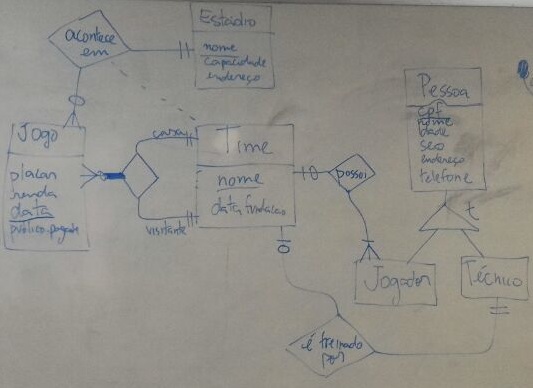 Estádio
nome
capacidade
endereço
acontece
em
Jogo
placar
renda
data
público pagante
casa
visitante
Time
nome
data fundacao
possui
Pessoa
cpf
nome
idade
sexo
endereço
telefone
t
Jogador
Técnico
é treinado
por